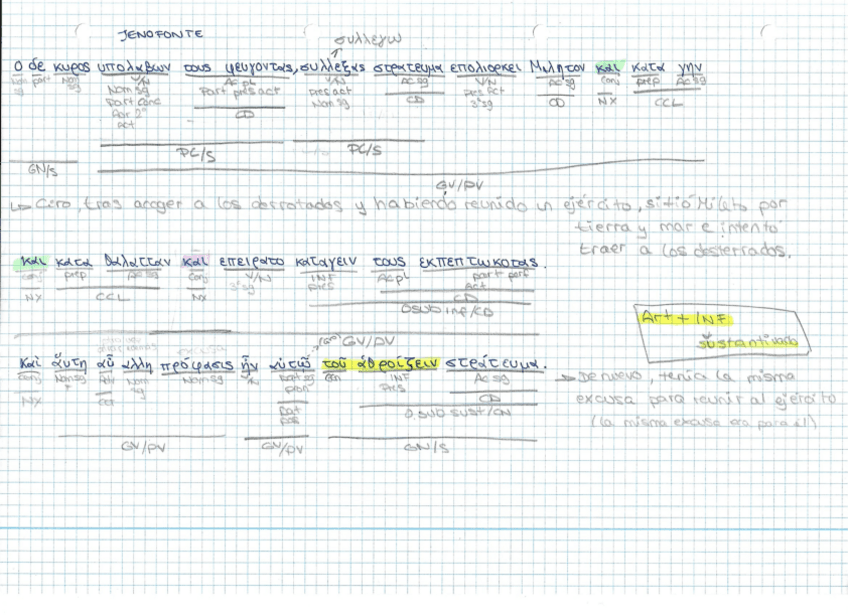 JENOFONTE
συλλεγω
ο δε κυρος υπολαβων τους φευγοντας, συλλεξας στρατευμα επολιορκει Μιλητον και κατα γην
Nom sg part Nom sg V/N Ac pl V/N Ac sg V/N Ac sg conj prep Ac sg
Nom sg Part pres act Pres act CD Pres Act CD NX CCL
Part conc CD Nom sg 3ª sg
Aor 2º
act
PC/S PC/S
GN/S GV/PV
Ciro, tras acoger a los derrotados y habiendo reunido un ejército, sitió Mileto por
tierra y mar e intentó
traer a los desterrados.
και κατα θαλατταν και επειρατο καταγειν τους εκπεπτωκοτας.
conj prep Ac sg conj V/N INF Ac pl part perf
NX CCL NX 3ª sg Pres Act
CD
O SUB INF/CD
GV/PV
Art + INF
sustantivado
Καὶ αὕτη αὖ ἄλλη πρόφασις ἦν αὐτῷ τοῦ ἁθροίζειν στράτευμα.
conj Nom sg Adv Nom sg Nom sg V/N Dat sg Gen INF Ac sg
NX CCT pron Pres CD
Dat pos O SUB SUST/CN
GV/PV GV/PV GN/S
De nuevo, tenía la misma
excusa para reunir al ejército
(la misma excusa era para él)